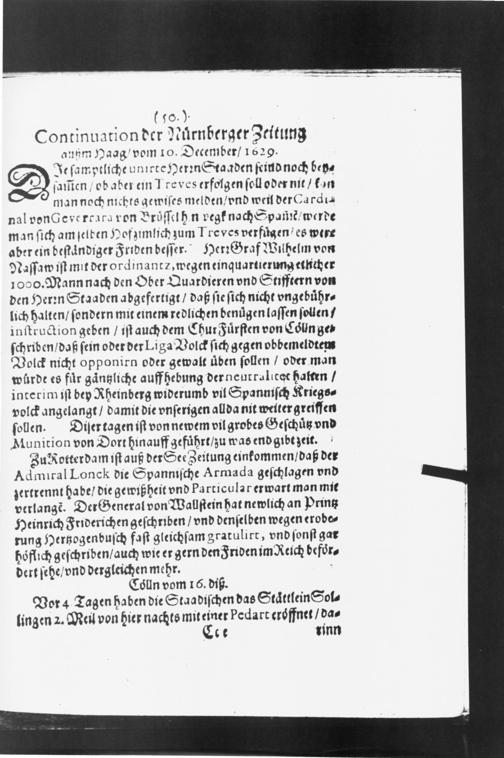 (50.)
Continuation der Nürnberger Zeitung
außm Haag/vom 10. December/1629.
Die samptliche unirte Herrn Staaden seind noch bey-
samen/ob aber ein Treves erfolgen soll oder nit/kan
man noch nichts gewises melden/vnd weil der Cardi-
nal von Geverrara von Brüssel hin vegk nach Spanië/werde
man sich am selben Hof zimlich zum Treves verfügen/es were
aber ein beständiger Friden besser. Herr Graf Wilhelm von
Nassaw ist mit der ordinantz, wegen einquartierung etlicher
1000. Mann nach den Ober Quardieren vnd Stifftern von
den Herrn Staaden abgefertigt/daß sie sich nicht vngebühr-
lich halten/sondern mit einem redlichen benügen lassen sollen/
instruction geben/ist auch dem Chur Fürsten von Cölln ge-
schriben/daß sein oder der Liga Volck sich gegen obbemeldtem
Volck nicht opponirn oder gewalt üben sollen/oder man
würde es für gäntzliche auffhebung der neutralitet halten/
interim ist bey Rheinberg widerumb vil Spannisch Kriegs-
volck angelangt/damit die vnserigen allda nit weiter greiffen
sollen. Diser tagen ist von newem vil grobes Geschütz vnd
Munition von Dort hinauff geführt/zu was end gibt zeit.
Zu Rotterdam ist auß der See Zeitung einkommen/daß der
Admiral Lonck die Spannische Armada geschlagen vnd
zertrennt habe/die gewißheit vnd Particular erwart man mit
verlangē. Der General von Wallstein hat newlich an Printz
Heinrich Friderichen geschriben/vnd denselben wegen erobe-
rung Hertzogenbusch fast gleichsam gratulirt, vnd sonst gar
höflich geschriben/auch wie er gern den Friden im Reich beför-
dert sehe/vnd dergleichen mehr.
Cölln vom 16. diß.
Vor 4 Tagen haben die Staadischen das Stättlein Sol-
lingen 2. Meil von hier nachts mit einer Pedart eröffnet/da-
Cce rinn